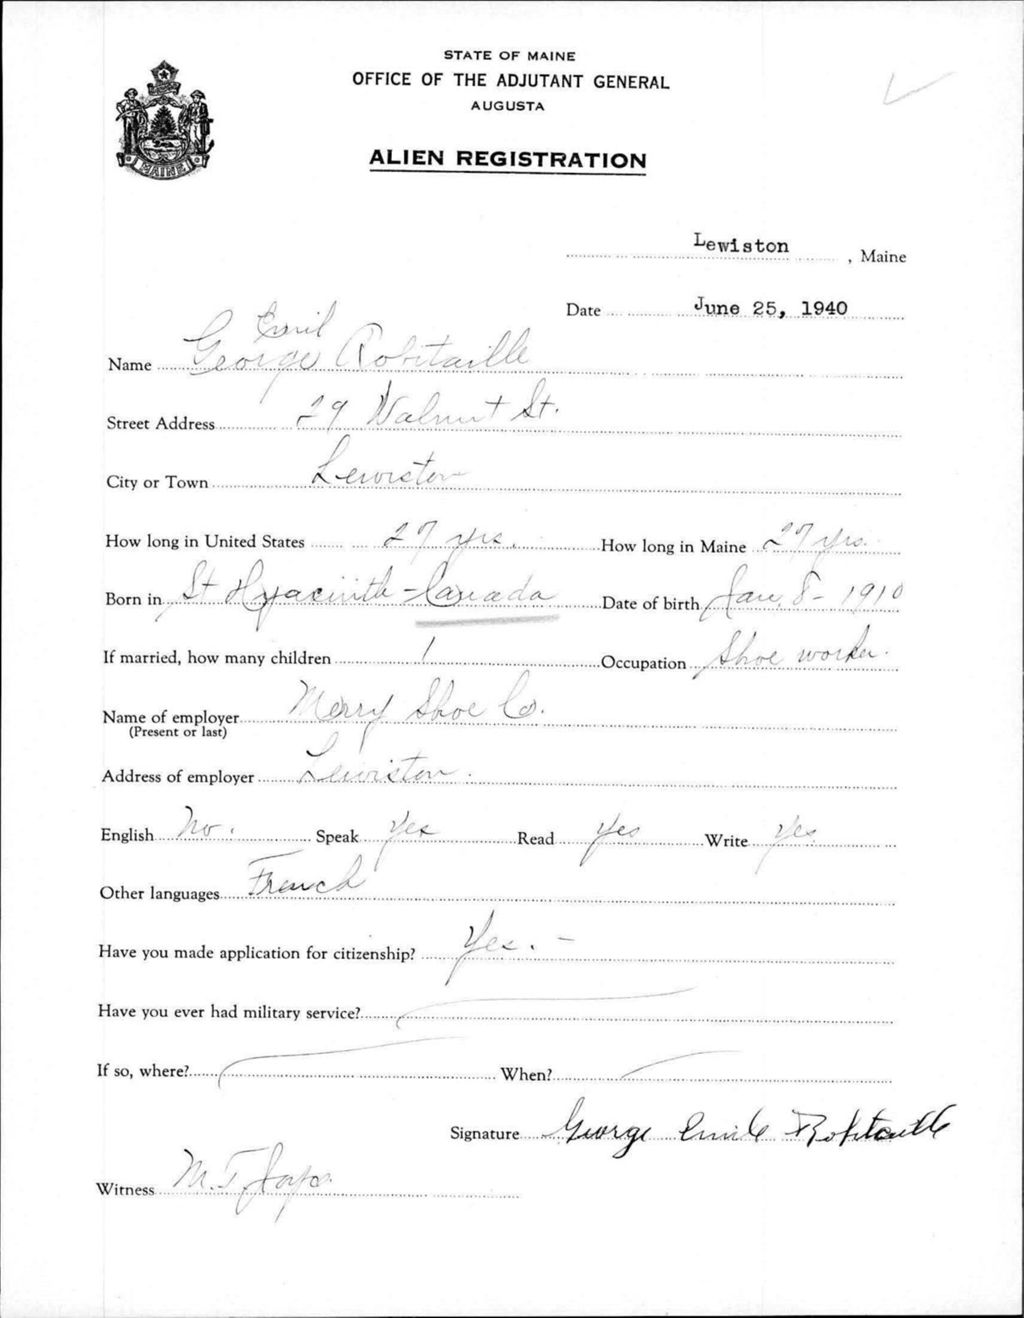 STATE OF MAINE
OFFICE OF THE ADJUTANT GENERAL
AUGUSTA
MAINE
ALIEN REGISTRATION
Lewiston, Maine
Date June 25, 1940
Emil
Name George Robitaille
Street Address 29 Walnut St.
City or Town Lewiston
How long in United States 27 yrs. How long in Maine 27 yrs.
Born in St Hyacinth - Canada Date of birth Jan. 8 - 1910
If married, how many children 1 Occupation Shoe worker.
Name of employer Merry Shoe Co.
(Present or last)
Address of employer Lewiston.
English No. Speak Yes Read Yes Write Yes
Other languages French
Have you made application for citizenship? Yes. -
Have you ever had military service?
If so, where? When?
Signature George Emile Robitaille
Witness M. T.